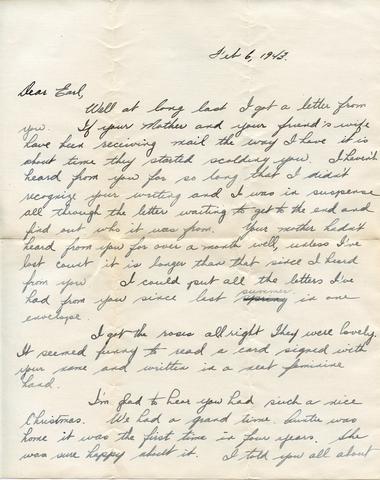 Feb 6, 1943.
Dear Earl,
Well at long last I got a letter from
you. If your Mother and your friend's wife
have been receiving mail the way I have it is
about time they started scolding you. I haven't
heard from you for so long that I didn't
recognize your writing and I was in suspense
all through the letter waiting to get to the end and
find out who it was from. Your mother hadn't
heard from you for over a month well, unless I've
lost count it is longer than that since I heard
from you. I could put all the letters I've
had from you since last spring summer in one
envelope.
I got the roses all right They were lovely.
It seemed funny to read a card signed with
your name and written in a neat feminine
hand.
I'm glad to hear you had such a nice
Christmas. We had a grand time. was
home it was the first time in four years. She
was sure happy about it. I told you all about